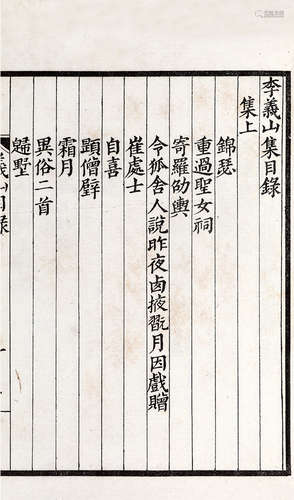 李義山集目錄
集上
錦瑟
重過聖女祠
寄羅劭輿
令狐舍人說昨夜西掖翫月因戲贈
崔處士
自喜
題僧壁
霜月
異俗二首
歸墅
義山目錄
一